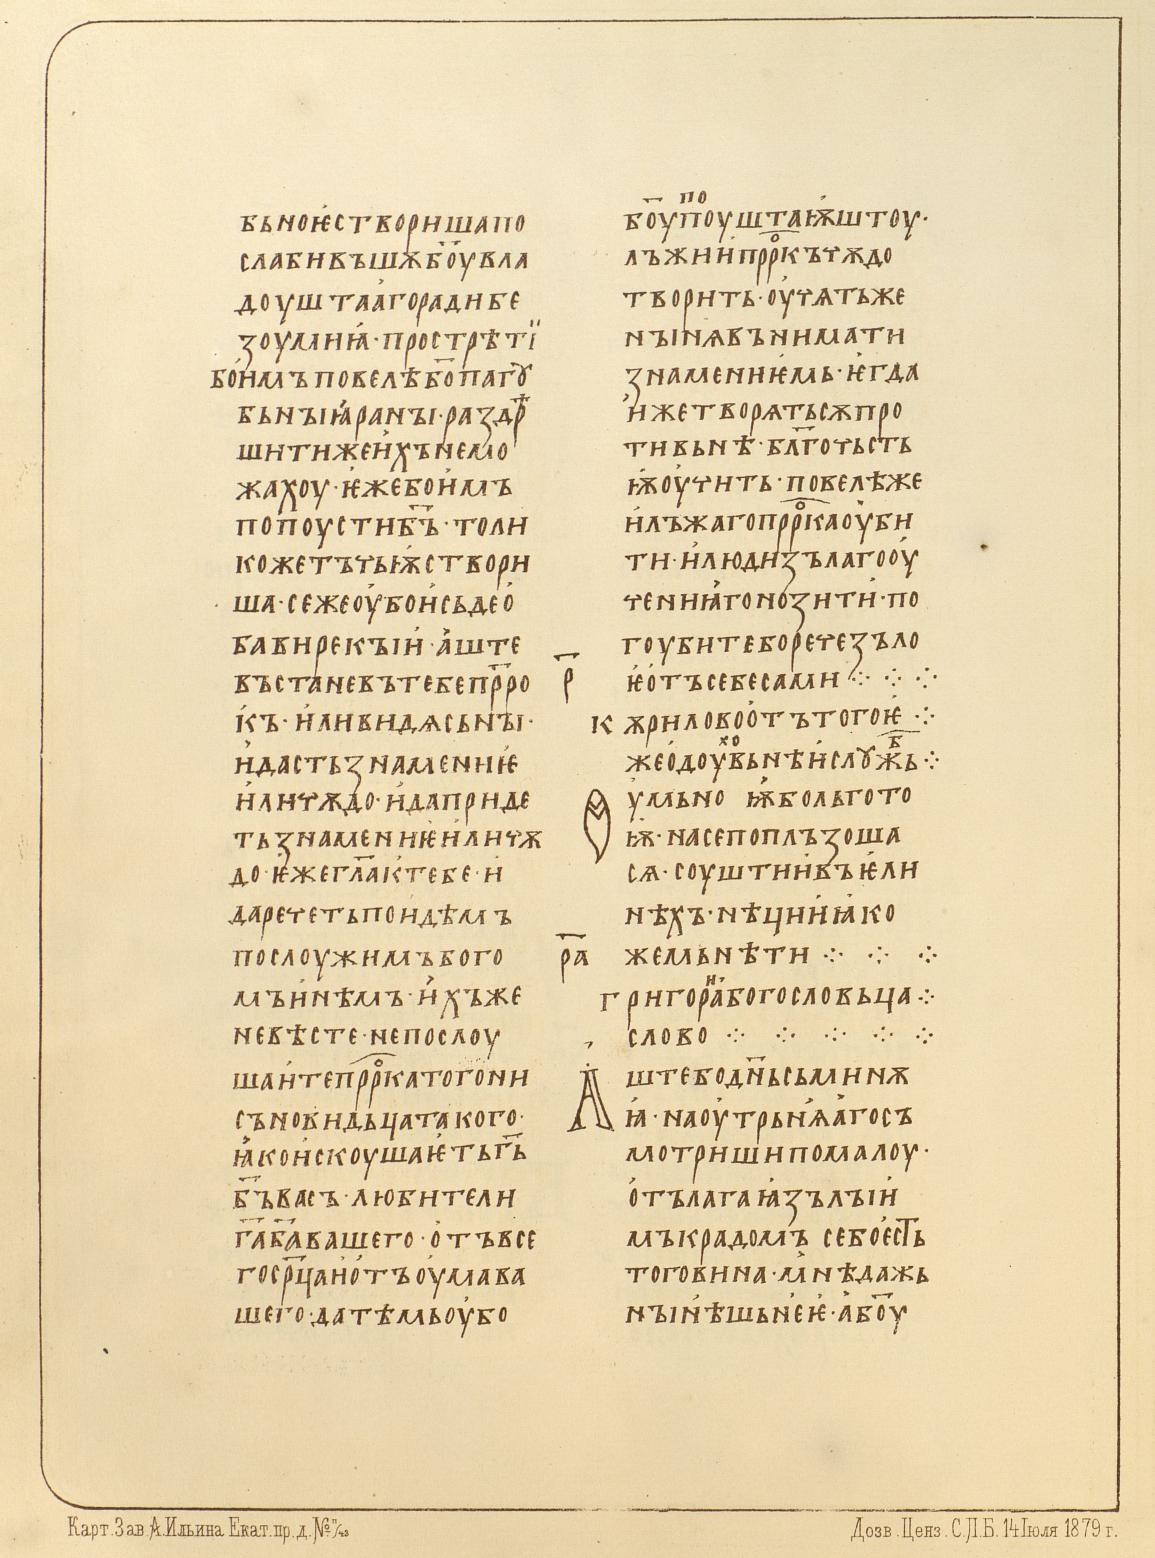 бьноѥ створиша по
слабивъшѫ б҃оу вла
доуштааго ради бе
зоумиꙗ · прострѣті
боимъ повелѣ бо патоу
бьныꙗ раны · раздрѣ
шити же ихъ не мо
жахоу · ѥже бо имъ
попоусти б҃ъ · толи
ко же тъчьѭ створи
ша · се же оубо и сьде о
бави рекыи · аште
въстане въ тебе пр҃ро
къ · или видѧ сьны ·
и дасть знамениѥ
или чѫдо · и да приде
ть знамениѥ или чѫ
до · ѥже г҃ла к тебе · и
да речеть поидѣмъ
послоужимъ бого
мъ инѣмъ · ихъже
не вѣсте · не послоу
шаите пр҃рка того ни
съновидьца такого ·
ꙗко искоушаѥть г҃ь
б҃ъ васъ · любители
г҃а б҃а вашего · отъ все
го ср҃ца и отъ оума ва
шего · да тѣмь оубо
р҃
р҃а
б҃оу попоуштаѭштоу ·
лъжии пр҃ркъ чѫдо
творить · оучѧть же
ны нѧ вънимати
знамениѥмь · ѥгда
иже творѧть сѫ про
тивьнѣ · бл҃гочьсть
ѭ оучить · повелѣ же
и лъжаго пр҃рка оуби
ти · и люди зълаго оу
чениꙗ гонозити · по
гоубите бо рече зъло
ѥ отъ себе сами ⁘ ⁘ ⁘
кѫрилово отъ тогоѥ ⁘
же о доуховьнѣи слоужьб ⁘
оумьно ѭ больгото
ѭ · на се пополъзоша
сѧ · соуштии въ ѥли
нѣхъ · нѣции ꙗко
же мьнѣти ⁘ ⁘ ⁘
григориꙗ богословьца ⁘
слово ⁘ ⁘ ⁘ ⁘ ⁘
Аште бо дн҃ьсь минѫ
ꙗ · на оутрьнѧаго съ
мотриши помалоу ·
отълагаꙗ зълыи
мъкрадомъ себо есть
того вина · мнѣ дажь
нынѣшьнеѥ · а б҃оу
Карт. Зав. А. Ильина Екат. пр. д. № 11/43
Дозв. Ценз. С.П.Б. 14 Іюля 1879 г.